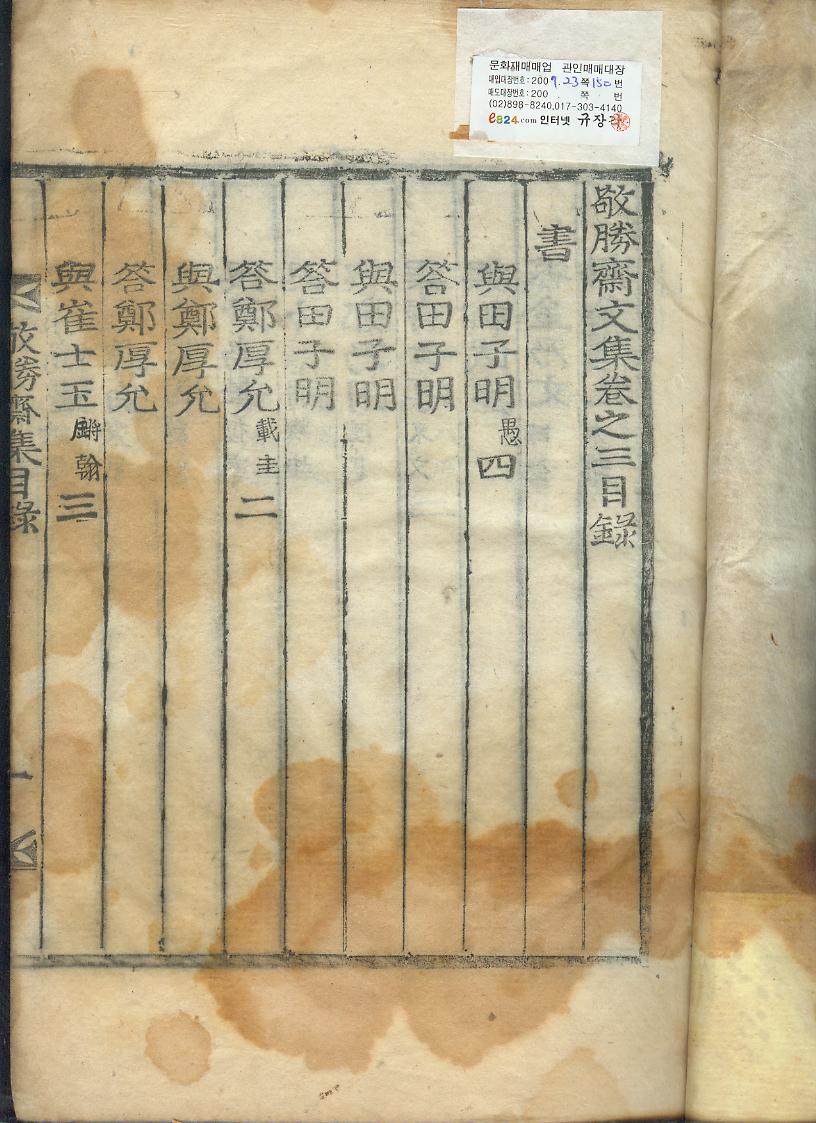 문화재매매업 관인매매대장
매입대장번호: 2007.23쪽150번
매도대장번호: 200 쪽 번
(02)898-8240,017-303-4140
e824.com 인터넷 규장각
敬勝齋文集卷之三目錄
書
與田子明愚四
答田子明
與田子明
答田子明
答鄭厚允載圭二
與鄭厚允
答鄭厚允
與崔士玉翰三
敬勝齋集目錄 一